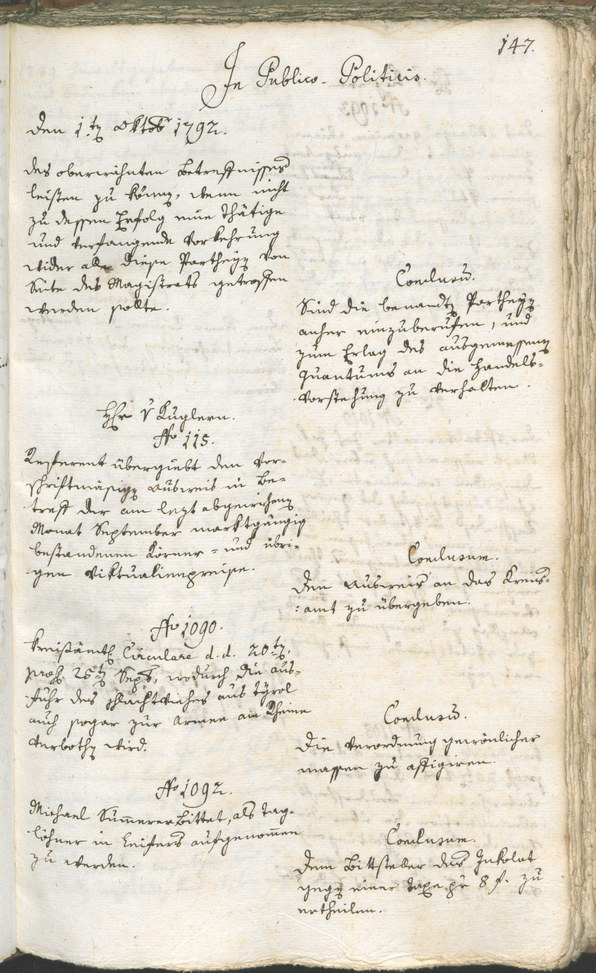 147.
In Publico-Politicis.
den 1ten Oktob 1792.
des oberwähnten Betreffnisses
leisten zu können, wenn nicht
zu dessen Erfolg eine thätige
und verfangende Vorkehrung
wider alle diese Partheyen von
Seite des Magistrats getroffen
werden sollte.
Conclusū.
Sind die benandten Partheyen
anher einzuberufen, und
zum Erlag des ausgemessenen
quantums an die Handels-
vorstehung zu verhalten.
Hr v Kuglern.
No 115.
Referent übergiebt den vor-
schriftmäsigen Ausweis in Be-
treff der am lezt abgewichenen
Monat September marktgängig
bestandenen Körner- und übri-
gen Viktualienpreise.
Conclusum.
Den Ausweis an das Kreis-
amt zu übergeben.
No 1090.
Kreisämtl Circulare d.d. 20ten
præs 25ten Septb, wodurch die Aus-
fuhr des Schlachtviehes aus Tyrol
auch sogar zur Armee am Rheine
verbothen wird.
Conclusū.
Die Verordnung gewönlicher
massen zu affigiren.
No 1092.
Michael Summerer bittet, als Tag-
löhner in Leifers aufgenom̄en
zu werden.
Conclusum.
Dem Bittsteller das Inkolat
gegen einer Taxe pr 8 f. zu
ertheilen.